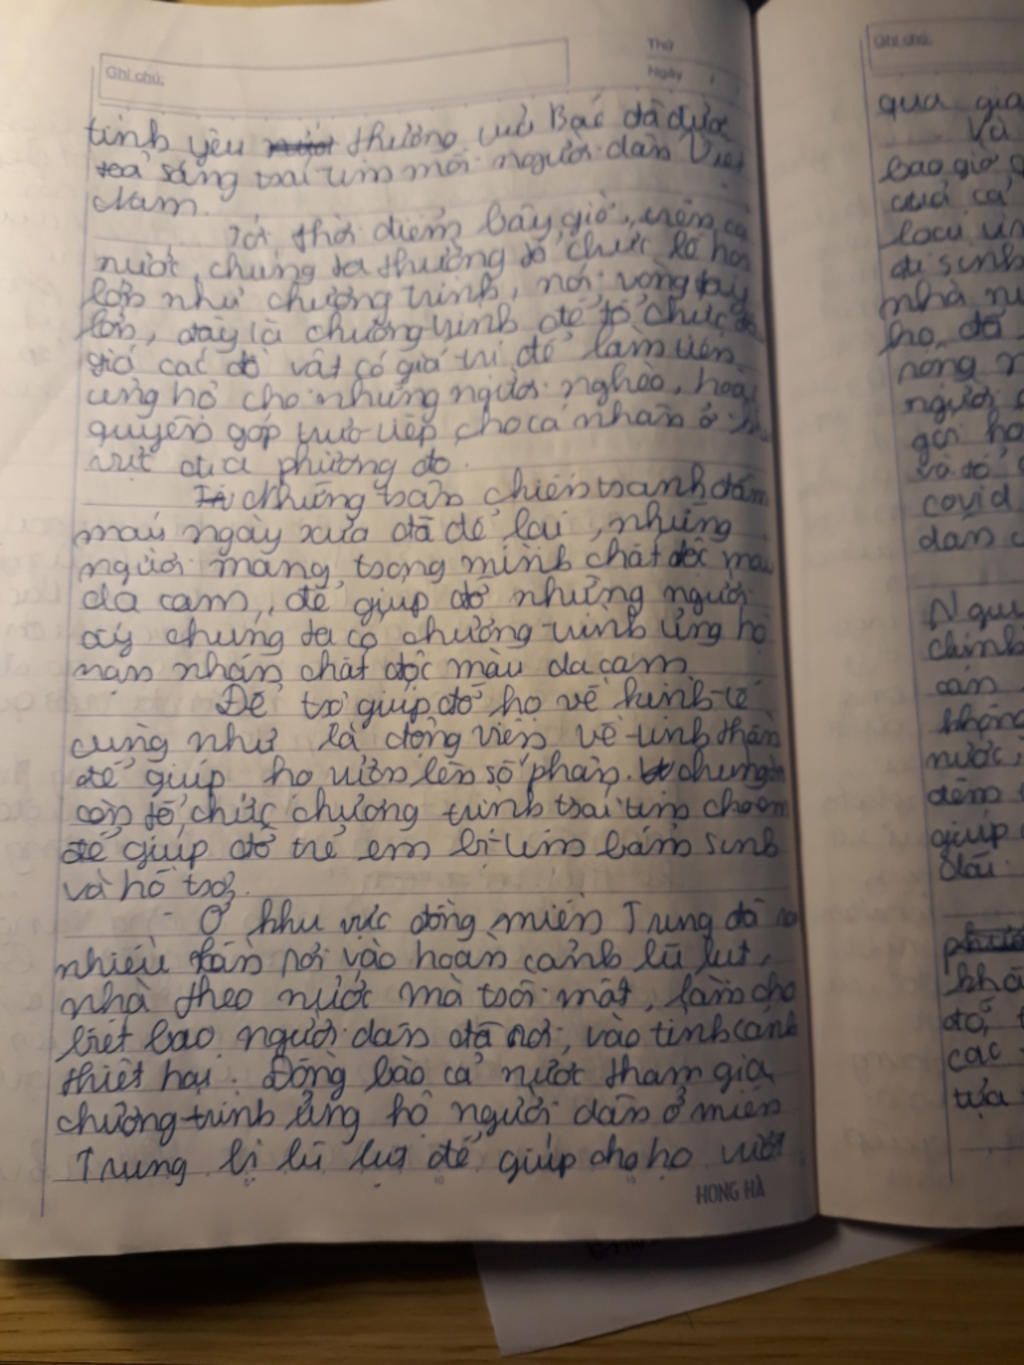 Ghi chú:
Thứ
Ngày
tình yêu thương với Bác đã được
toả sáng trái tim mỗi người dân Việt
Nam.
Tới thời điểm bây giờ, trên cả
nước, chúng ta thường tổ chức lễ hội
lớn như chương trình, nối vòng tay
lớn, đây là chương trình để tổ chức
giá các đồ vật có giá trị để làm
ủng hộ cho những người nghèo, hoặc
quyên góp trực tiếp cho cá nhân ở
vực của phương đó.
Những trận chiến tranh đẫm
máu ngày xưa đã để lại, những
người mang trong mình chất độc màu
da cam, để giúp đỡ những người
ấy chúng ta có chương trình ủng hộ
nạn nhân chất độc màu da cam
Để trợ giúp đỡ họ về kinh tế
cũng như là động viên về tinh thần
để giúp họ vươn lên số phận. chúng ta
còn tổ chức chương trình trái tim cho em
để giúp đỡ trẻ em bị tim bẩm sinh
và hỗ trợ.
- Ở khu vực đồng miền Trung đã
nhiều lần rơi vào hoàn cảnh lũ lụt,
nhà theo nước mà trôi mất, làm cho
biết bao người dân đã rơi, vào tình cảnh
thiệt hại. Đồng bào cả nước tham gia
chương trình ủng hộ người dân ở miền
Trung bị lũ lụt để giúp cho họ vượt
HONG HÀ
Ghi chú:
qua gia
Và
bao giờ
của cả
đi sinh
nhà nư
họ, đã
nóng
người
gửi
và tổ
covid
dân
chính
nước,
đêm
giúp
khă
đó,
các
tựa